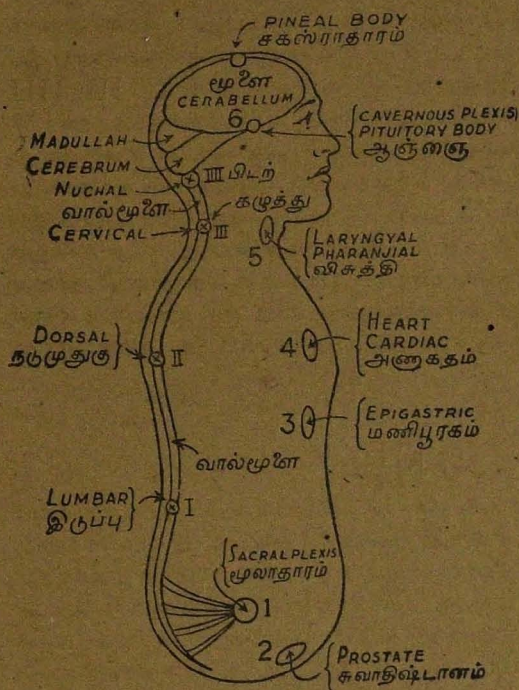 PINEAL BODY
சகஸ்ராதாரம்
மூளை
CERABELLUM
6
CAVERNOUS PLEXIS
PITUITORY BODY
ஆஞ்ஞை
MADULLAH
CEREBRUM
NUCHAL
III பிடற்
வால்மூளை
கழுத்து
CERVICAL
III
5
LARYNGYAL
PHARANJIAL
விசுத்தி
DORSAL
நடுமுதுகு
II
4
HEART
CARDIAC
அணுகதம்
3
EPIGASTRIC
மணிபூரகம்
வால்மூளை
LUMBAR
இடுப்பு
I
SACRAL PLEXIS
மூலாதாரம்
1
2
PROSTATE
சுவாதிஷ்டானம்